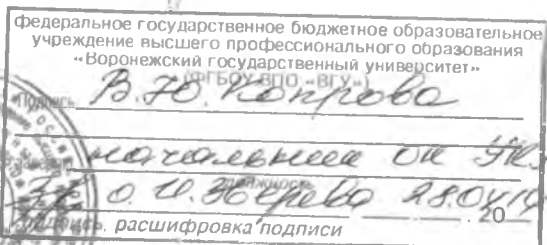 федеральное государственное бюджетное образовательное
учреждение высшего профессионального образования
«Воронежский государственный университет»
(ФГБОУ ВПО «ВГУ»)
Подпись В.Ю. Копрова
начальник
должность
О.И. Зверева 28.04 20
подпись, расшифровка подписи